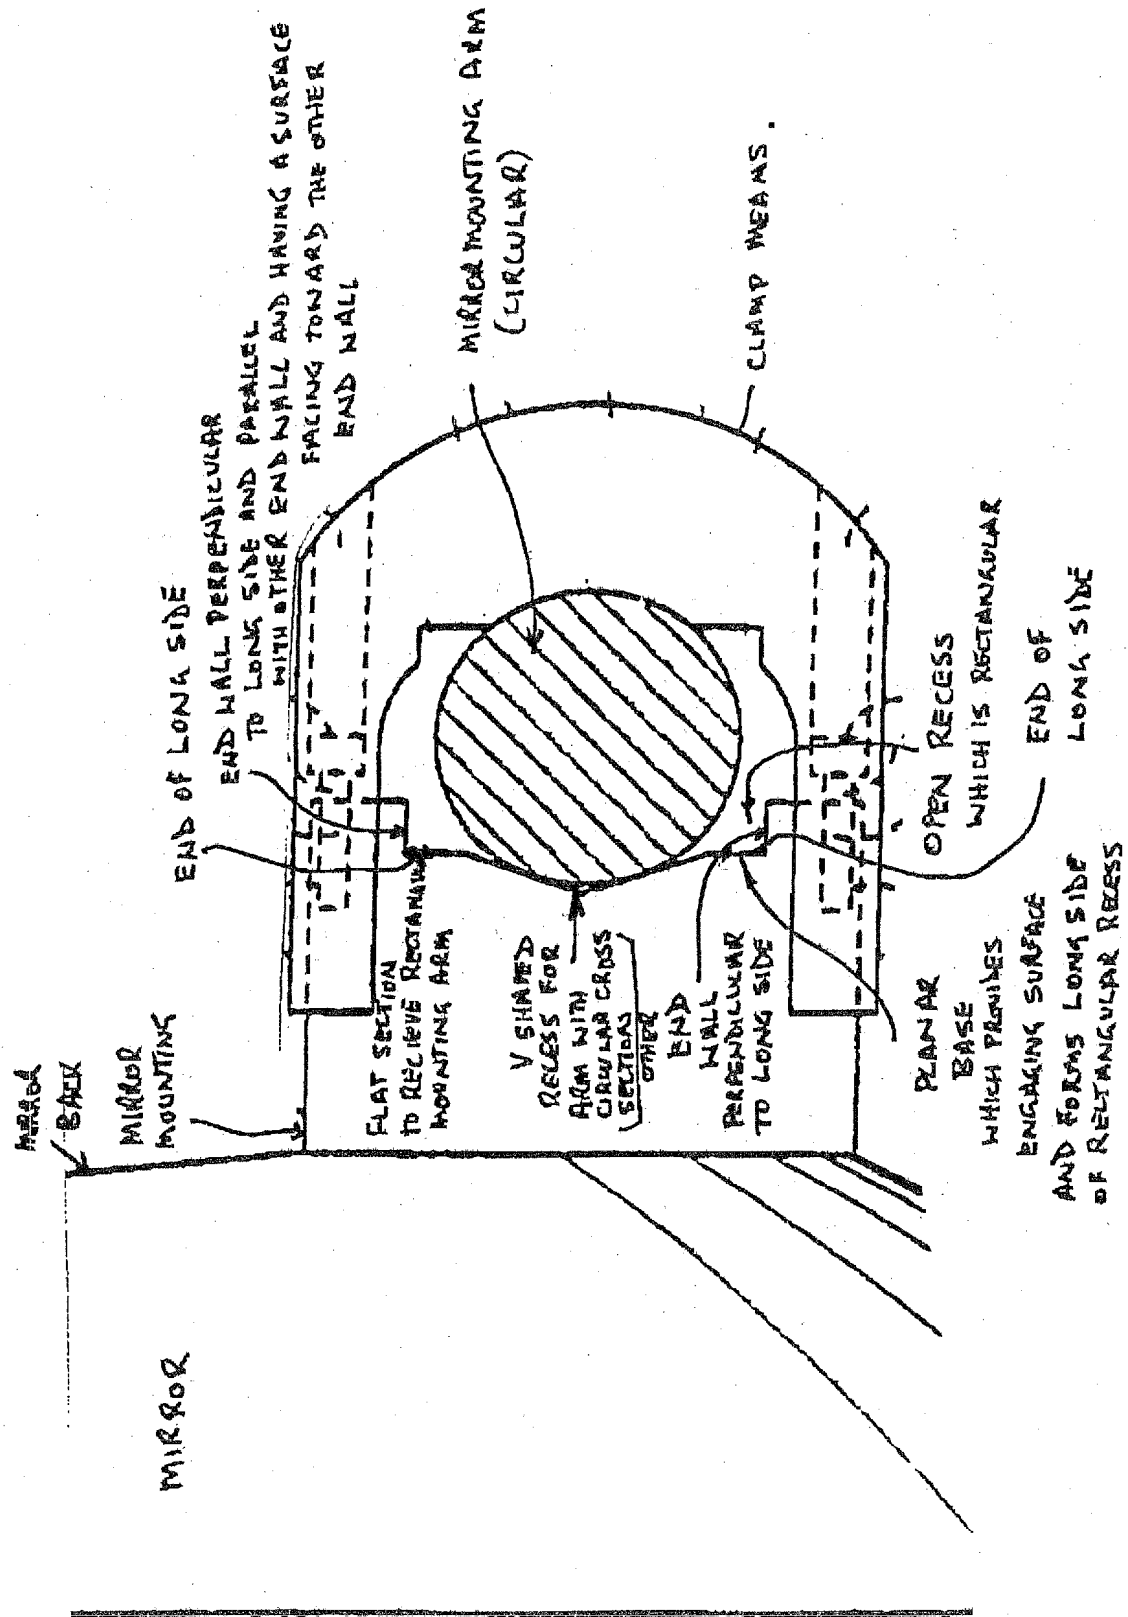 MIRROR
BACK
MIRROR
MOUNTING
MIRROR
END OF LONG SIDE
END WALL PERPENDICULAR
TO LONG SIDE AND PARALLEL
WITH OTHER END WALL AND HAVING A SURFACE
FACING TOWARD THE OTHER
END WALL
MIRROR MOUNTING ARM
(CIRCULAR)
CLAMP MEANS.
FLAT SECTION
TO RECIEVE
MOUNTING ARM
V SHAPED
RECES FOR
ARM WITH
CIRCULAR CROSS
SECTIONS
OTHER
END
WALL
PERPENDICULAR
TO LONG SIDE
OPEN RECESS
WHICH IS RECTANGULAR
END OF
LONG SIDE
PLANAR
BASE
WHICH PROVIDES
ENGAGING SURFACE
AND FORMS LONG SIDE
OF RECTANGULAR RECESS